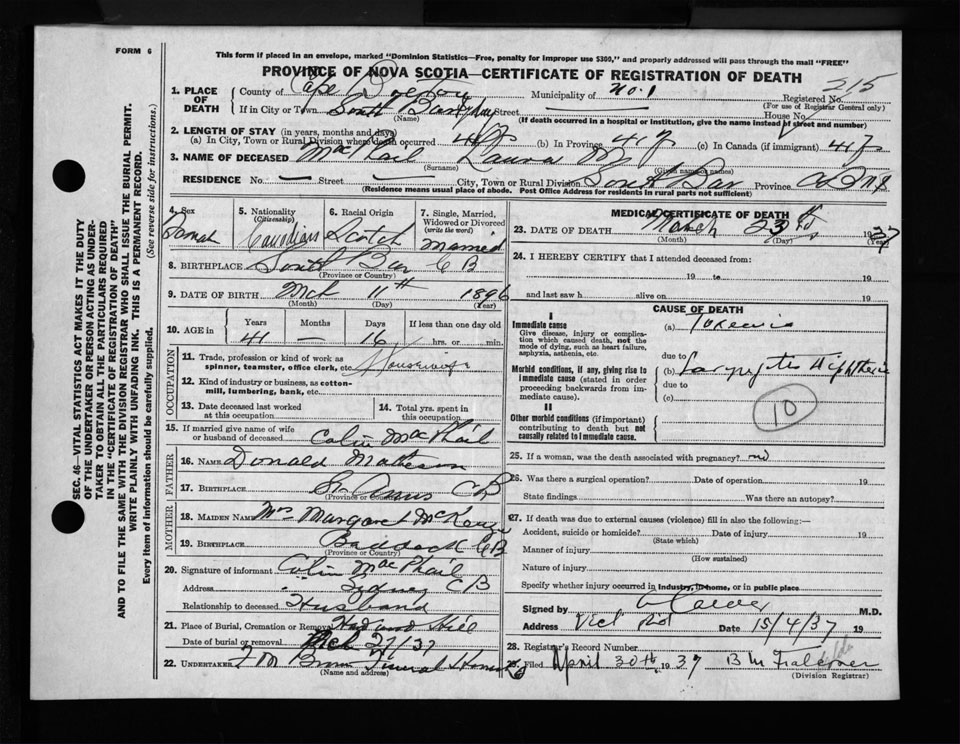 FORM 6
This form if placed in an envelope, marked "Dominion Statistics—Free, penalty for improper use $300," and properly addressed will pass through the mail "FREE"
PROVINCE OF NOVA SCOTIA—CERTIFICATE OF REGISTRATION OF DEATH
215
1. PLACE OF DEATH
County of Cape Breton Municipality of No. 1 Registered No.
(For use of Registrar General only)
If in City or Town South Bar Street House No.
(Name) (If death occurred in a hospital or institution, give the name instead of street and number)
2. LENGTH OF STAY (in years, months and days)
(a) In City, Town or Rural Division where death occurred 41 y (b) In Province 41 y (c) In Canada (if immigrant) 41 y
3. NAME OF DECEASED MacPhail Laura
(Surname) (Given name or names)
RESIDENCE No. — Street — City, Town or Rural Division South Bar Province
(Residence means usual place of abode. Post Office Address for residents in rural parts not sufficient)
4. Sex Female
5. Nationality (Citizenship) Canadian
6. Racial Origin Scotch
7. Single, Married, Widowed or Divorced (write the word) Married
8. BIRTHPLACE South Bar C B
(Province or Country)
9. DATE OF BIRTH Mch 11th 1896
(Month) (Day) (Year)
10. AGE in Years Months Days If less than one day old
41 — 16 hrs. or min.
OCCUPATION
11. Trade, profession or kind of work as spinner, teamster, office clerk, etc. Housewife
12. Kind of industry or business, as cotton-mill, lumbering, bank, etc.
13. Date deceased last worked at this occupation
14. Total yrs. spent in this occupation
15. If married give name of wife or husband of deceased Colin MacPhail
FATHER
16. NAME Donald Matheson
17. BIRTHPLACE St Anns C B
(Province or Country)
MOTHER
18. MAIDEN NAME Mrs Margaret McKenzie
19. BIRTHPLACE Baddeck C B
(Province or Country)
20. Signature of informant Colin MacPhail
Address Sydney C B
Relationship to deceased Husband
21. Place of Burial, Cremation or Removal Hardwood Hill
Date of burial or removal Mch 27/37
22. UNDERTAKER Funeral Home
(Name and address)
MEDICAL CERTIFICATE OF DEATH
23. DATE OF DEATH March 23 1937
(Month) (Day) (Year)
24. I HEREBY CERTIFY that I attended deceased from:
19 to 19
and last saw h alive on 19
CAUSE OF DEATH
I
Immediate cause
Give disease, injury or complication which caused death, not the mode of dying, such as heart failure, asphyxia, asthenia, etc.
(a) Toxemia
due to
Morbid conditions, if any, giving rise to immediate cause (stated in order proceeding backwards from immediate cause).
(b) Laryngitis Diphtheria
due to
(c)
10
II
Other morbid conditions (if important) contributing to death but not causally related to immediate cause.
25. If a woman, was the death associated with pregnancy? no
26. Was there a surgical operation? Date of operation 19
State findings Was there an autopsy?
27. If death was due to external causes (violence) fill in also the following:—
Accident, suicide or homicide? Date of injury 19
(State which)
Manner of injury
(How sustained)
Nature of injury
Specify whether injury occurred in industry, in home, or in public place
Signed by M.D.
Address Date 15/4/37 19
28. Registrar's Record Number
29. Filed April 30th 1937 B M Falconer
(Division Registrar)
SEC. 46—VITAL STATISTICS ACT MAKES IT THE DUTY OF THE UNDERTAKER OR PERSON ACTING AS UNDERTAKER TO OBTAIN ALL THE PARTICULARS REQUIRED IN THE "CERTIFICATE OF REGISTRATION OF DEATH" AND TO FILE THE SAME WITH THE DIVISION REGISTRAR WHO SHALL ISSUE THE BURIAL PERMIT.
WRITE PLAINLY WITH UNFADING INK. THIS IS A PERMANENT RECORD.
Every item of information should be carefully supplied. (See reverse side for instructions.)